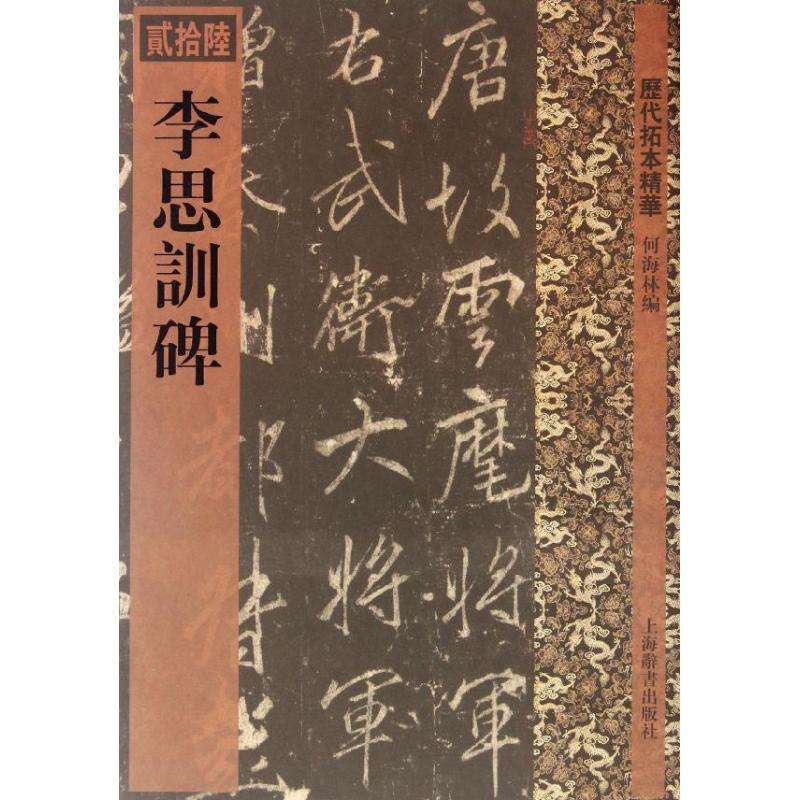 貳拾陸
李思訓碑
唐故雲麾將軍
右武衛大將軍
歷代拓本精華
何海林编
上海辭書出版社